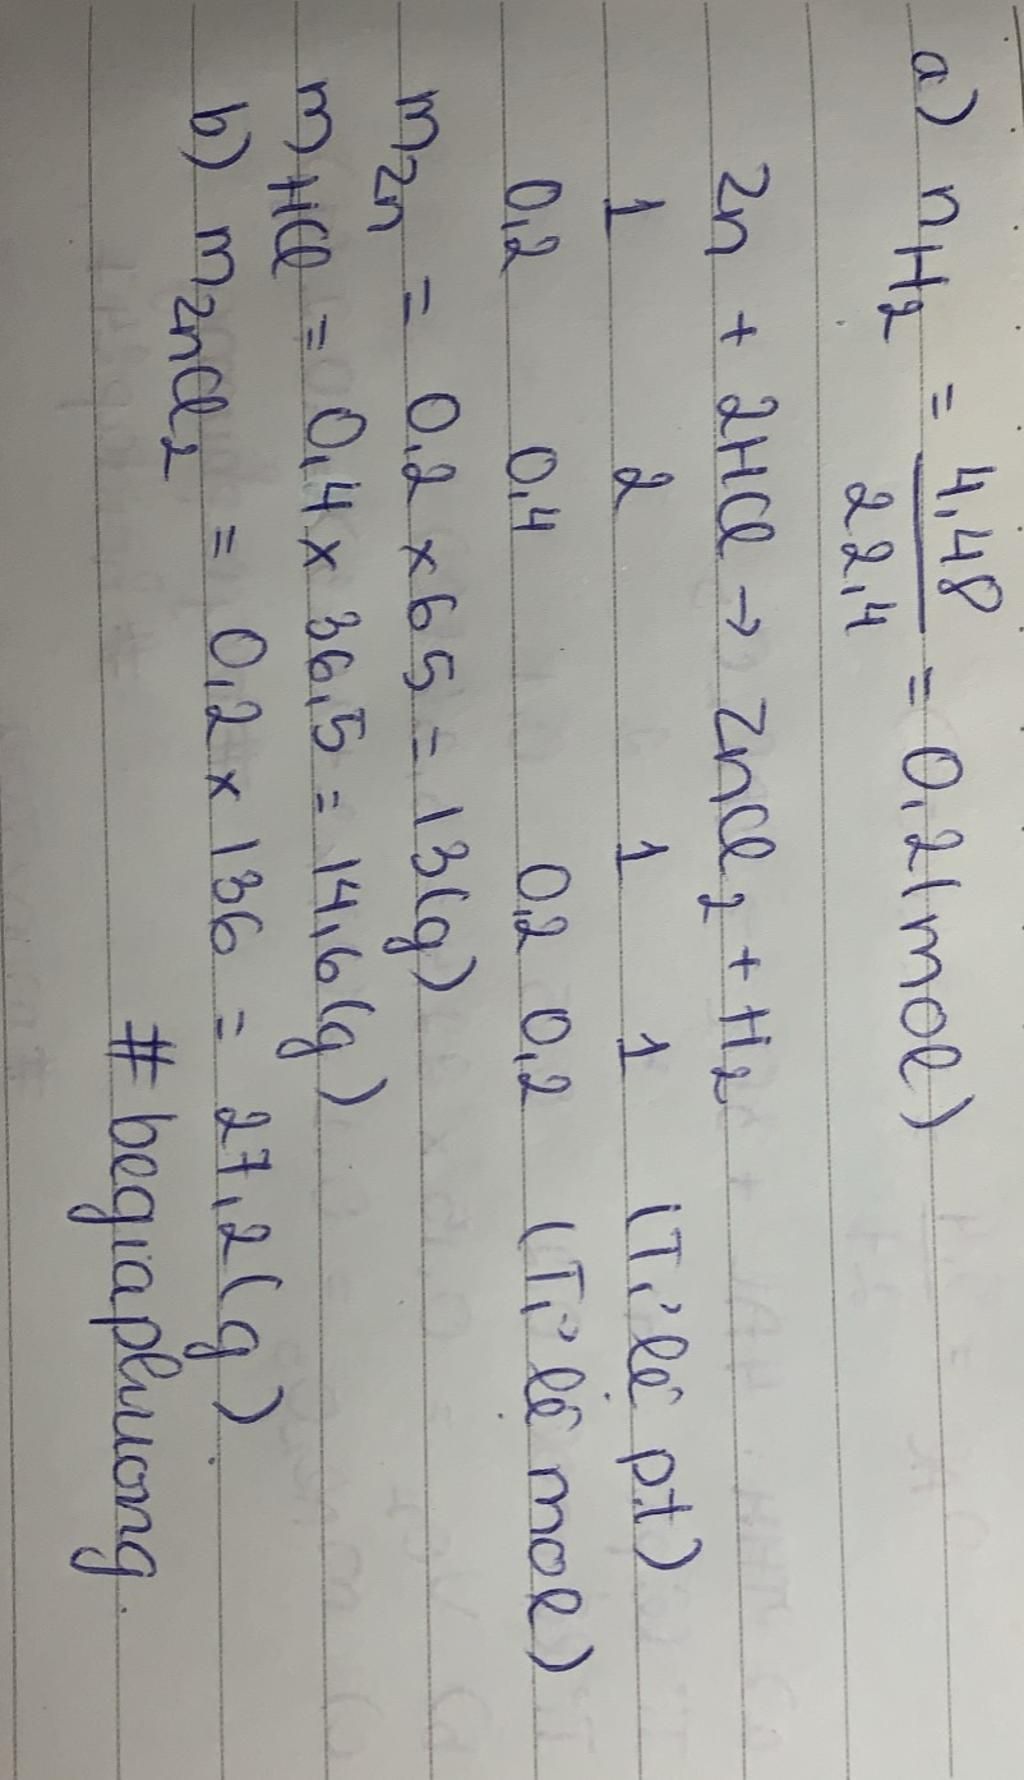 a) nH2 = 4,48 / 22,4 = 0,2 (mol)
Zn + 2HCl → ZnCl2 + H2
1 2 1 1 (Tỉ lệ pt)
0,2 0,4 0,2 0,2 (Tỉ lệ mol)
mZn = 0,2 x 65 = 13(g)
mHCl = 0,4 x 36,5 = 14,6(g)
b) mZnCl2 = 0,2 x 136 = 27,2(g).
# begiaphuong.